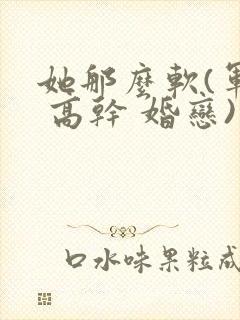 她那麼軟(軍
高幹 婚戀)
口水味果粒成